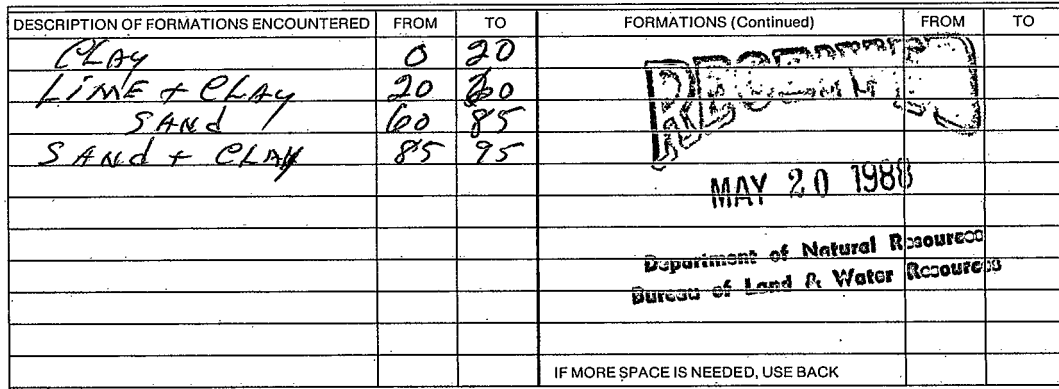 DESCRIPTION OF FORMATIONS ENCOUNTERED FROM TO FORMATIONS (Continued) FROM TO
CLAY 0 20
LIME + CLAY 20 60
SAND 60 85
SANd + CLAY 85 95
RECEIVED
MAY 20 1988
Department of Natural Resources
Bureau of Land & Water Resources
IF MORE SPACE IS NEEDED, USE BACK